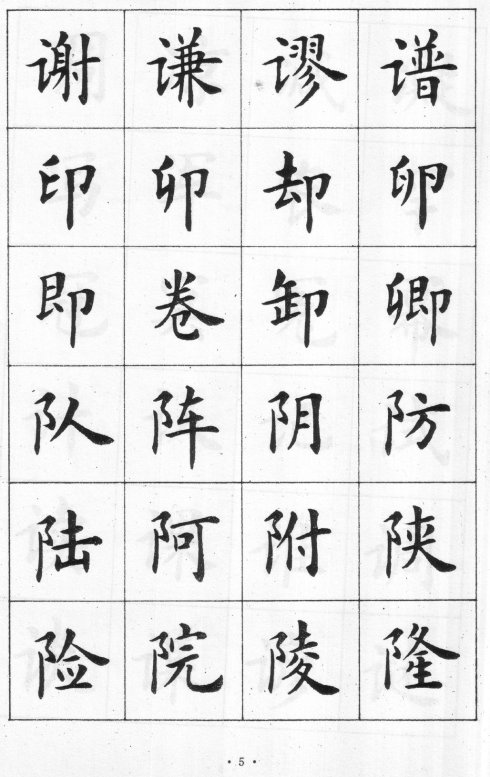 谢谦谬谱
印卯却卵
即卷卸卿
队阵阴防
陆阿附陕
险院陵隆
· 5 ·